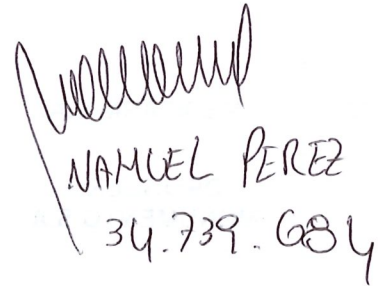 NAHUEL PEREZ
34.739.684